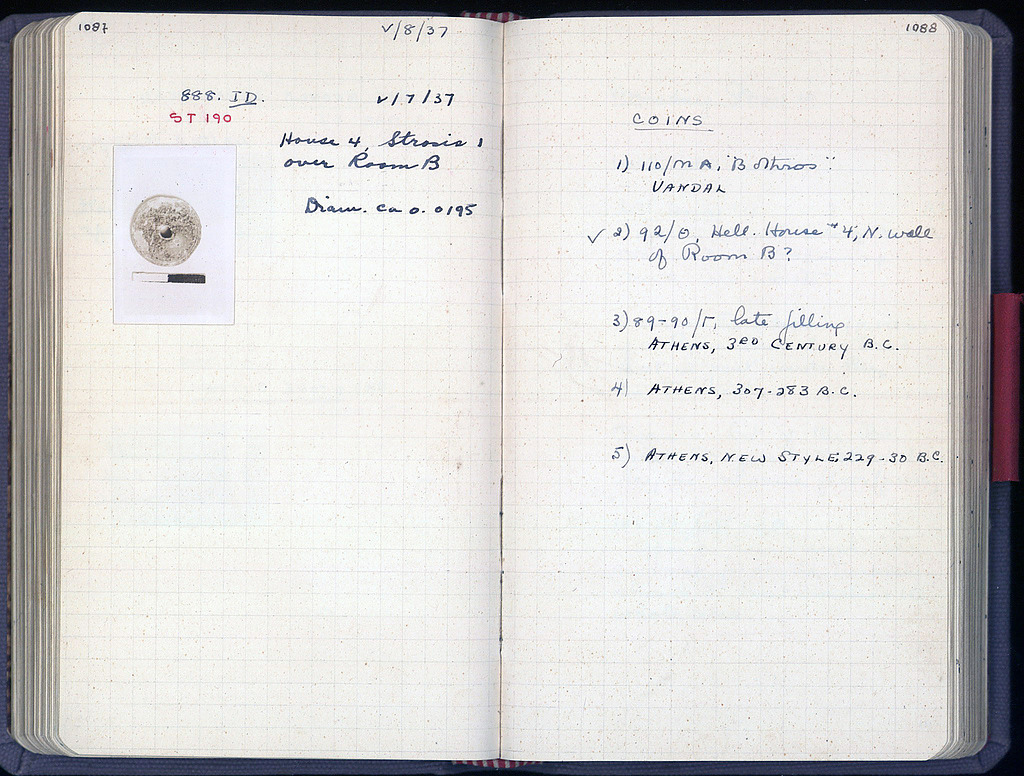 1087
V/8/37
888. ID.
V/7/37
ST 190
House 4, Strosis 1
over Room B
Diam. ca 0.0195
1088
COINS
1) 110/ΜΑ, "Bothros"
VANDAL
✓ 2) 92/Θ, Hell. House #4, N. wall
of Room B?
3) 89-90/Γ, late filling
ATHENS, 3RD CENTURY B.C.
4) ATHENS, 307-283 B.C.
5) ATHENS, NEW STYLE, 229-30 B.C.